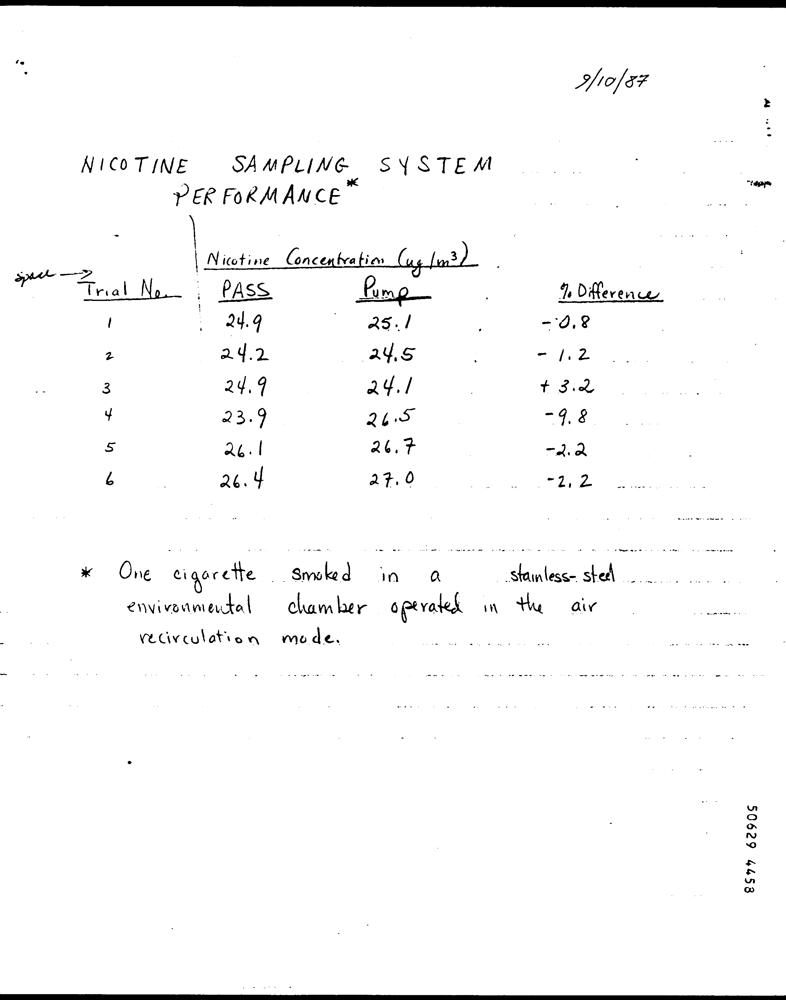 9/10/87
NICOTINE SAMPLING SYSTEM
PERFORMANCE*
Nicotine Concentration (ug/m³)
space →
Trial No. PASS Pump % Difference
1 24.9 25.1 -0.8
2 24.2 24.5 -1.2
3 24.9 24.1 +3.2
4 23.9 26.5 -9.8
5 26.1 26.7 -2.2
6 26.4 27.0 -2.2
* One cigarette smoked in a stainless-steel
environmental chamber operated in the air
recirculation mode.
50629 4458